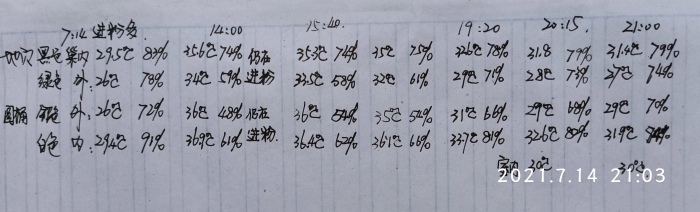 7:14 进粉多 14:00 15:40 19:20 20:15 21:00
黑色 巢内 29.5℃ 83% 35.6℃ 74% 仍在 35.3℃ 74% 35℃ 75% 32.6℃ 78% 31.8 79% 31.4℃ 79%
绿色 外:26℃ 78% 34℃ 59% 进粉 33.5℃ 58% 32℃ 61% 29℃ 71% 28℃ 73% 27℃ 74%
圆桶 外:26℃ 72% 36℃ 48% 仍在 36℃ 54% 35℃ 54% 31℃ 66% 29℃ 68% 29℃ 70%
白色 内:29.4℃ 91% 36.9℃ 61% 进粉. 36.4℃ 62% 36.1℃ 66% 33.7℃ 81% 32.6℃ 80% 31.9℃
室内 30℃ 30℃
2021.7.14 21:03